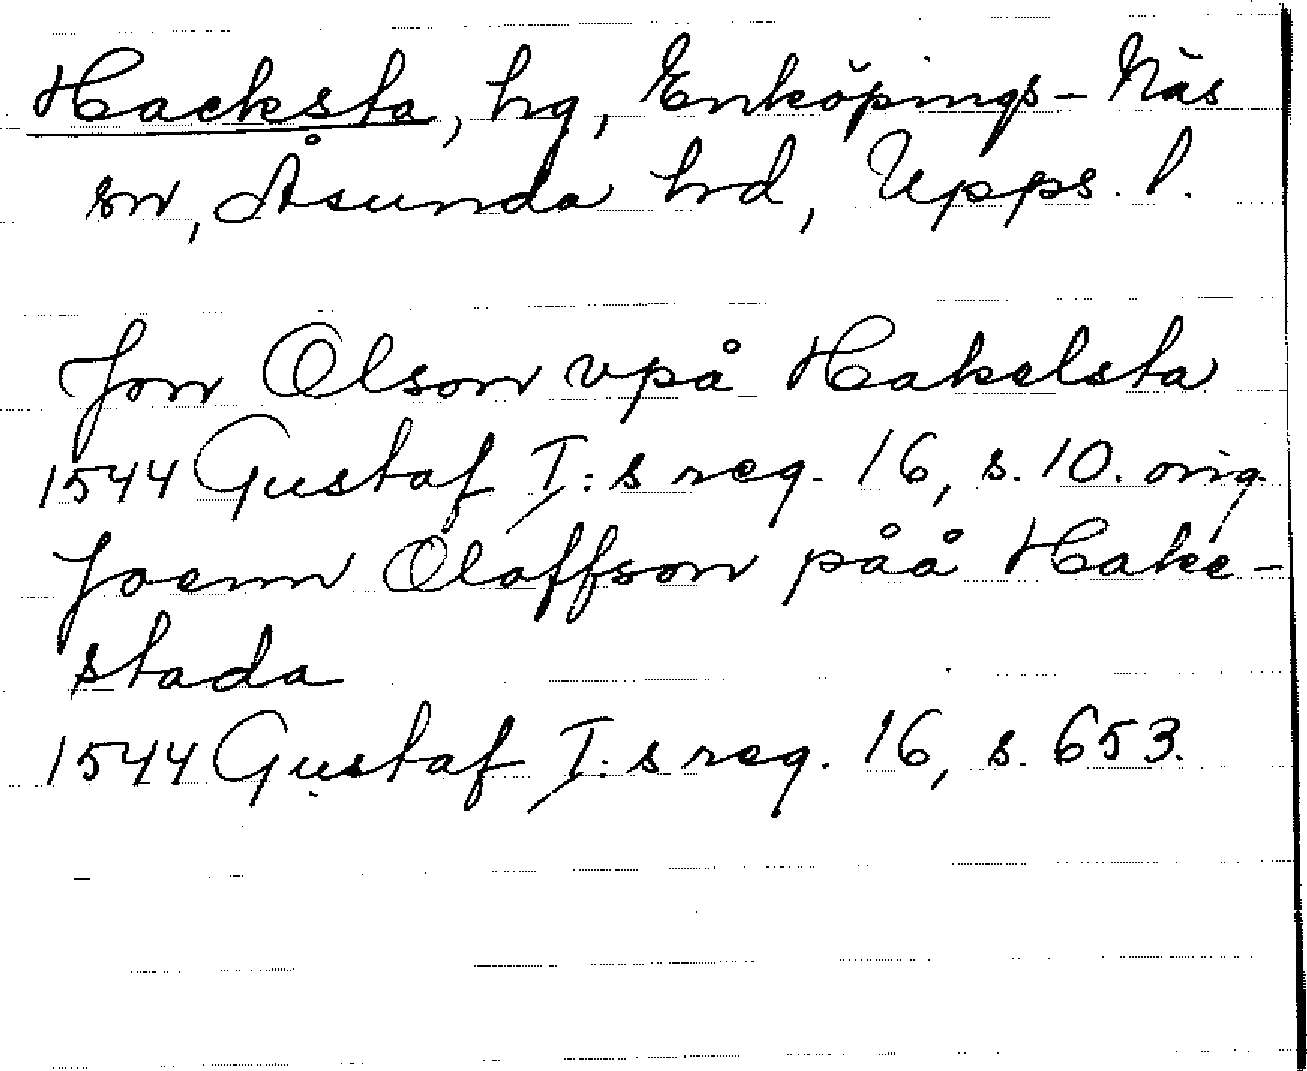 Hacksta, hg, Enköpings-Näs
sn, Åsunda hrd, Upps. l.
Jon Olson vpå Hakelsta
1544 Gustaf I:s reg. 16, s. 10. orig.
Joenn Oloffson påå Hake-
stada
1544 Gustaf I:s reg. 16, s. 653.